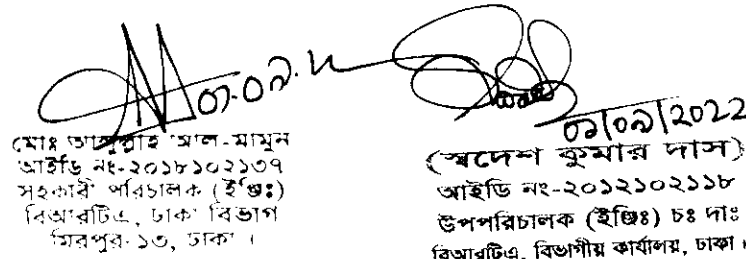 ০১.০৯.২২
মোঃ আব্দুল্লাহ আল-মামুন
আইডি নং-২০১৮১০২১৩৭
সহকারী পরিচালক (ইঞ্জিঃ)
বিআরটিএ, ঢাকা বিভাগ
মিরপুর-১৩, ঢাকা ।
০১/০৯/2022
(স্বদেশ কুমার দাস)
আইডি নং-২০১২১০২১১৮
উপপরিচালক (ইঞ্জিঃ) চঃ দাঃ
বিআরটিএ, বিভাগীয় কার্যালয়, ঢাকা।